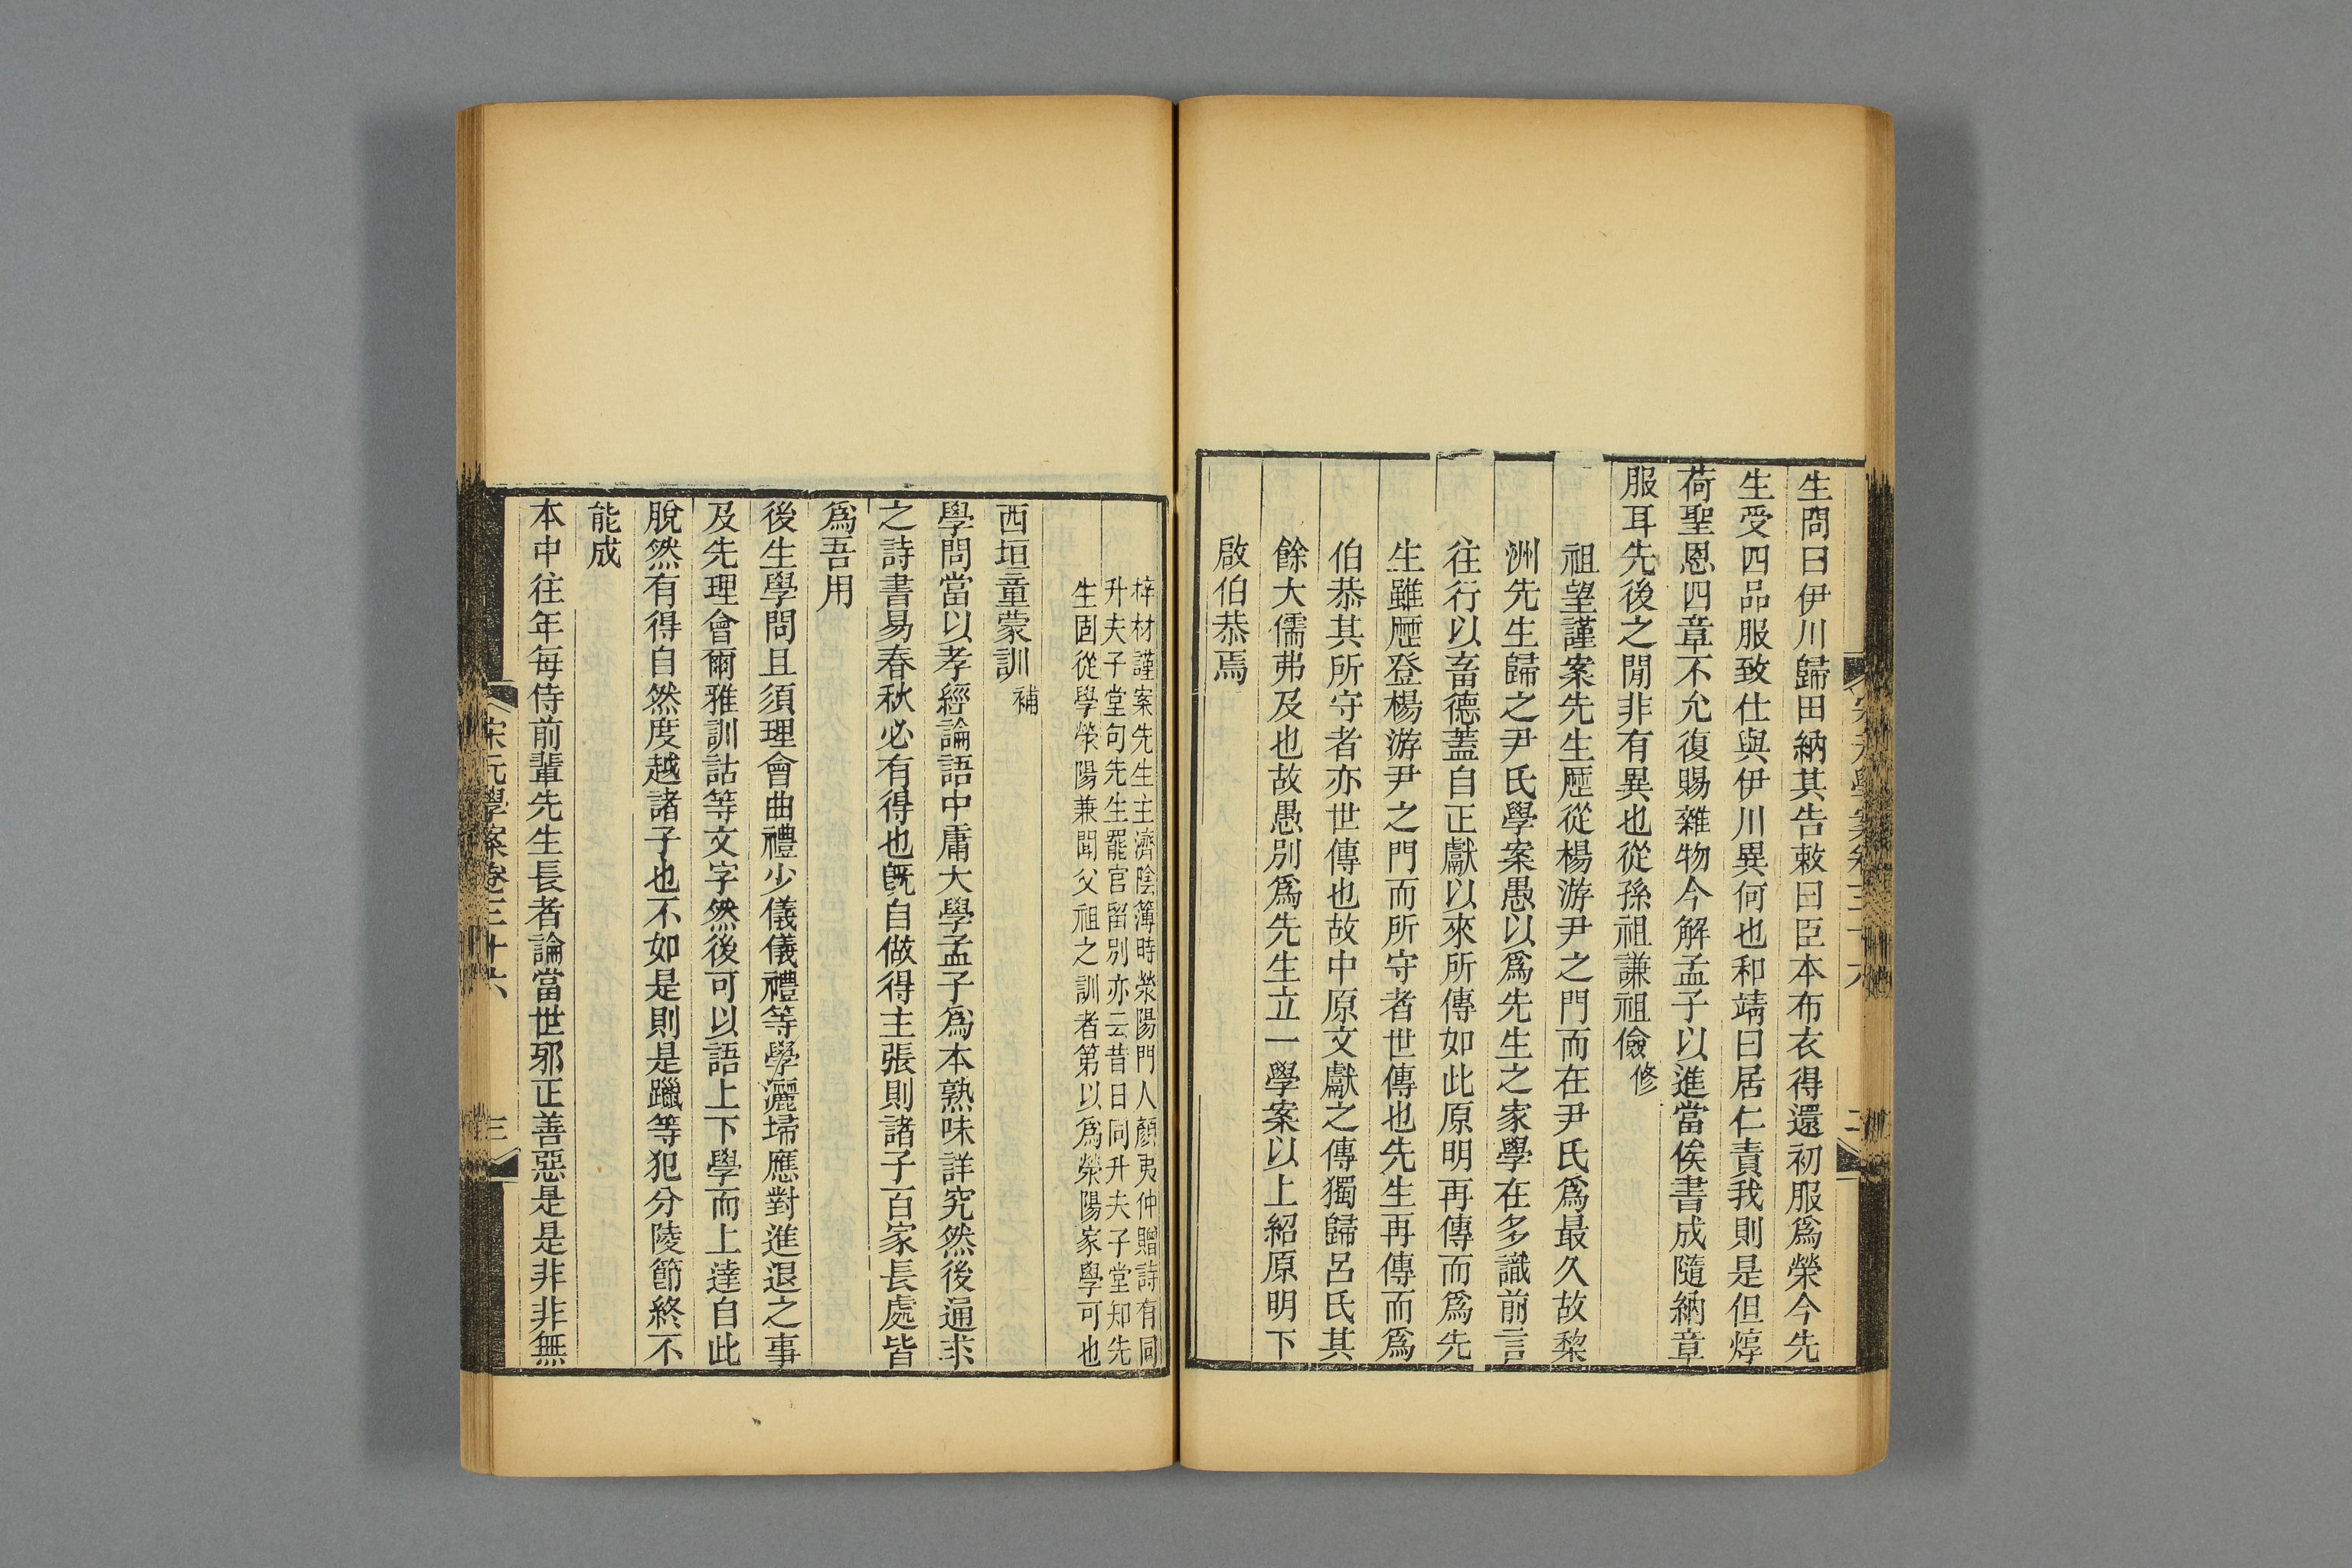 生問曰伊川歸田納其告敕曰臣本布衣得還初服爲榮今先
生受四品服致仕與伊川異何也和靖曰居仁責我則是但焞
荷聖恩四章不允復賜雜物今解孟子以進當俟書成隨納章
服耳先後之閒非有異也從孫祖謙祖儉修
祖望謹案先生歷從楊游尹之門而在尹氏爲最久故黎
洲先生歸之尹氏學案愚以爲先生之家學在多識前言
往行以畜德蓋自正獻以來所傳如此原明再傳而爲先
生雖歷登楊游尹之門而所守者世傳也先生再傳而爲
伯恭其所守者亦世傳也故中原文獻之傳獨歸呂氏其
餘大儒弗及也故愚別爲先生立一學案以上紹原明下
啟伯恭焉
梓材謹案先生主濟陰簿時滎陽門人顏夷仲贈詩有同
升夫子堂句先生罷官留別亦云昔日同升夫子堂知先
生固從學滎陽兼聞父祖之訓者第以爲滎陽家學可也
西垣童蒙訓補
學問當以孝經論語中庸大學孟子爲本熟味詳究然後通求
之詩書易春秋必有得也旣自做得主張則諸子百家長處皆
爲吾用
後生學問且須理會曲禮少儀儀禮等學灑埽應對進退之事
及先理會爾雅訓詁等文字然後可以語上下學而上達自此
脫然有得自然度越諸子也不如是則是躐等犯分陵節終不
能成
本中往年每侍前輩先生長者論當世邪正善惡是是非非無
宋元學案卷三十六
三